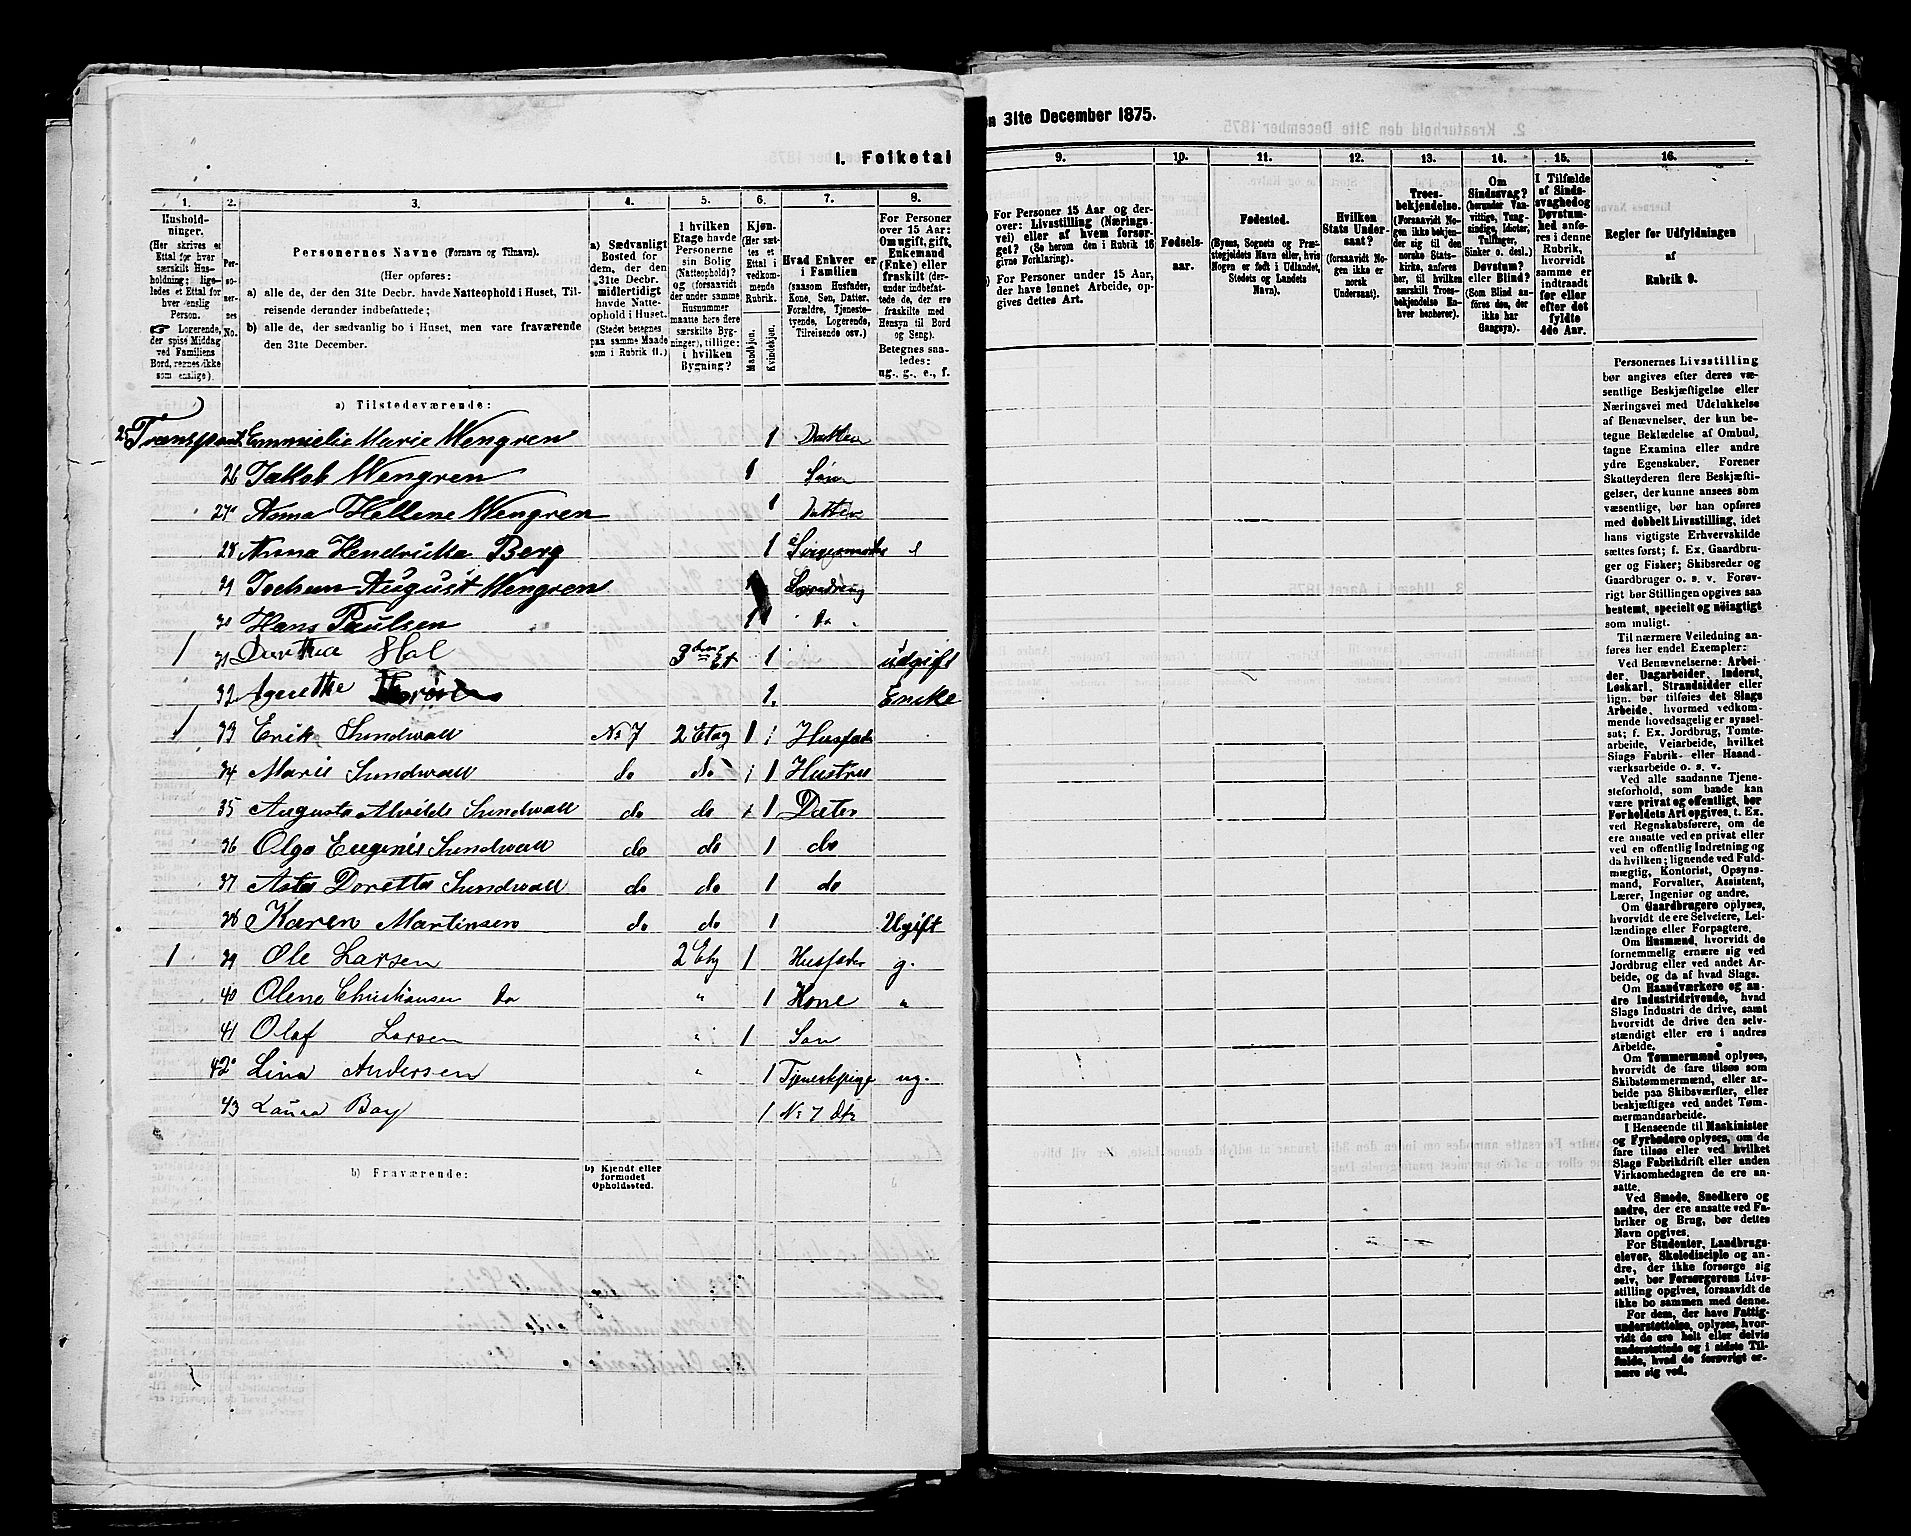 en 31te December 1875.
I. Folketal
1.
2.
3.
4.
5.
6.
7.
8.
Hushold-
ninger.
(Her skrives et
Ettal for hver
særskilt Hus-
holdning; lige-
ledes et Ettal for
hver enslig
Person.
☞ Logerende,
der spise Middag
ved Familiens
Bord, regnes ikke
som enslige).
Per-
so-
ner-
nes
No.
Personernes Navne (Fornavn og Tilnavn).
(Her opføres:
a) alle de, der den 31te Decbr. havde Natteophold i Huset, Til-
reisende derunder indbefattede;
b) alle de, der sædvanlig bo i Huset, men vare fraværende
den 31te December.
a) Sædvanligt
Bosted for
dem, der den
31te Decbr.
midlertidigt
havde Natte-
ophold i Huset.
(Stedet betegnes
paa samme Maade
som i Rubrik 11.)
I hvilken
Etage havde
Personerne
sin Bolig
(Natteophold)?
og (forsaavidt
der under samme
Husnummer
maatte høre flere
særskilte Byg-
ninger), tillige:
i hvilken
Bygning?
Kjøn.
(Her sæt-
tes et
Ettal i
vedkom-
mende
Rubrik.
Mandkjøn.
Kvindekjøn.
Hvad Enhver er
i Familien
(saasom Husfader,
Kone, Søn, Datter,
Forældre, Tjeneste-
tyende, Logerende,
Tilreisende osv.)
For Personer
over 15 Aar:
Om ugift, gift,
Enkemand
(Enke) eller
fraskilt (der-
under indbefat-
tede de, der ere
fraskilte med
Hensyn til Bord
og Seng).
Betegnes saa-
ledes:
ug., g., e., f.
a) Tilstedeværende:
25 Transport Emmielie Marie Wengren 1 Datter
26 Jakob Wengren 1 Søn
27 Anna Hellene Wengren 1 Datter
28 Anna Hendrikka Berg 1 e
29 Jochum August Wengren Læredreng
30 Hans Paulsen 1 do
1 31 Dorthea Hol 3 Et 1 udgift
32 Agnethe 1. Encke
1 33 Erik Sundwall No 7 2 Etag 1 Husfad
34 Marie Sundwall do do 1 Hustru
35 Augusta Alvilde Sundwall do do 1 Dater
36 Olga Eugenie Sundwall do do 1 do
37 Asta Doretta Sundwall do do 1 do
38 Karen Martinsen do do 1 Ugift
1 39 Ole Larsen 2 Etg 1 Husfader g.
40 Olene Christiansen do " 1 Kone "
41 Olaf Larsen " 1 Søn
42 Lina Andersen " 1 Tjenestpige ug.
43 Laura Bay 1 No 7 dtr
b) Fraværende:
b) Kjendt eller
formodet
Opholdssted.
9.
10.
11.
12.
13.
14.
15.
16.
) For Personer 15 Aar og der-
over: Livsstilling (Nærings-
vei) eller af hvem forsør-
get? (Se herom den i Rubrik 16
givne Forklaring).
) For Personer under 15 Aar,
der have lønnet Arbeide, op-
gives dettes Art.
Fødsels-
aar.
Fødested.
(Byens, Sognets og Præ-
stegjeldets Navn eller, hvis
Nogen er født i Udlandet,
Stedets og Landets
Navn).
Hvilken
Stats Under-
saat?
(forsaavidt No-
gen ikke er
norsk
Undersaat).
Troes-
bekjendelse.
(Forsaavidt No-
gen ikke bekjen-
der sig til den
norske Stats-
kirke, anføres
her, til hvilken
særskilt Troes-
bekjendelse En-
hver henhører).
Om
Sindssvag?
(herunder Van-
vittige, Tung-
sindige, Idioter,
Tullinger,
Sinker o. desl.).
Døvstum?
eller Blind?
(Som Blind an-
føres den, der
ikke har
Gangsyn).
I Tilfælde
af Sinds-
svaghed og
Døvstum-
hed anfø-
res i denne
Rubrik,
hvorvidt
samme er
indtraadt
før eller ef-
ter det
fyldte
4de Aar.
Regler for Udfyldningen
af
Rubrik 9.
Personernes Livsstilling
bør angives efter deres væ-
sentlige Beskjæftigelse eller
Næringsvei med Udelukkelse
af Benævnelser, der kun be-
tegne Beklædelse af Ombud,
tagne Examina eller andre
ydre Egenskaber. Forener
Skatteyderen flere Beskjæfti-
gelser, der kunne ansees som
væsentlige, bør han opføres
med dobbelt Livsstilling, idet
hans vigtigste Erhvervskilde
sættes først; f. Ex. Gaardbru-
ger og Fisker; Skibsreder og
Gaardbruger o. s. v. Forøv-
rigt bør Stillingen opgives saa
bestemt, specielt og nøiagtigt
som muligt.
Til nærmere Veiledning an-
føres her endel Exempler:
Ved Benævnelserne: Arbei-
der, Dagarbeider, Inderst,
Løskarl, Strandsidder eller
lign. bør tilføies det Slags
Arbeide, hvormed vedkom-
mende hovedsagelig er syssel-
sat; f. Ex. Jordbrug, Tomte-
arbeide, Veiarbeide, hvilket
Slags Fabrik- eller Haand-
værksarbeide o. s. v.
Ved alle saadanne Tjene-
steforhold, som baade kan
være privat og offentligt, bør
Forholdets Art opgives, t. Ex.
ved Regnskabsførere, om de
ere ansatte ved en privat eller
ved en offentlig Indretning og
da hvilken; lignende ved Fuld-
mægtig, Kontorist, Opsyns-
mand, Forvalter, Assistent,
Lærer, Ingeniør og andre.
Om Gaardbrugere oplyses,
hvorvidt de ere Selveiere, Lei-
lændinge eller Forpagtere.
Om Husmænd, hvorvidt de
fornemmelig ernære sig ved
Jordbrug eller ved andet Ar-
beide, og da af hvad Slags.
Om Haandværkere og an-
dre Industridrivende, hvad
Slags Industri de drive, samt
hvorvidt de drive den selv-
stændigt eller ere i andres
Arbeide.
Om Tømmermænd oplyses,
hvorvidt de fare tilsøs som
Skibstømmermænd, eller ar-
beide paa Skibsværfter, eller
beskjæftiges ved andet Tøm-
mermandsarbeide.
I Henseende til Maskinister
og Fyrbødere oplyses, om de
fare tilsøs eller ved hvilket
Slags Fabrikdrift eller anden
Virksomhedsgren de ere an-
satte.
Ved Smede, Snedkere og
andre, der ere ansatte ved Fa-
briker og Brug, bør dettes
Navn opgives.
For Studenter, Landbrugs-
elever, Skoledisciple og an-
dre, der ikke forsørge sig
selv, bør Forsørgerens Livs-
stilling opgives, forsaavidt de
ikke bo sammen med denne.
For dem, der have Fattig-
understøttelse, oplyses, hvor-
vidt de ere helt eller delvis
understøttede og i sidste Til-
fælde, hvad de forøvrigt er-
nære sig ved.